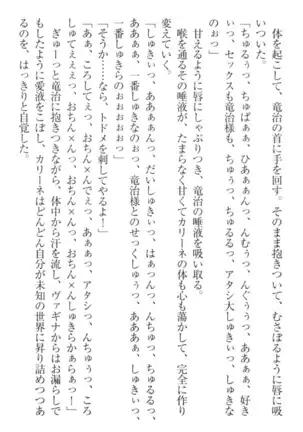 体を起こして、竜治の首に手を回す。そのまま抱きついて、むさぼるように唇に吸
いついた。
「ちゅるっ、ちゅぱぁっ、ひああぁんっ、んむぅっ、んぐぅぅっ、ああぁっ、好き
ぃっ、セックスも竜治様も、ちゅうっ、ちゅるるっ、アタシ大しゅきぃっ、しゅきな
のぉっ」
甘えるように唇にしゃぶりつき、竜治の唾液を吸い取る。
喉を通るその唾液が、たまらなく甘くてカリーネの体も心も蕩かして、完全に作り
変えていく。
「しゅきぃっ、ああぁぁんっ、だいしゅきぃっ、はぁっんっ、んちゅっ、ちゅるるっ、
あああぁっ、一番しゅきなのぉっ、竜治様とのせっくしゅぅっ、あああぁっ、しゅきぃ、
一番しゅきらのぉぉぉぉっ」
「そうか……なら、トドメを刺してやるよ！」
「あぁっ、ころしてぇっ、おちん×んでぇっ、あぁぁっ、アタシっ、んちゅぅっ、ころ
しゅてぇぇっ、おちん×んっ、おちん×んしゅきらからぁらっ！」
ぎゅーっと竜治に抱きつきながら、体中から汗を流し、ヴァギナからはお漏らしで
もしたように愛液をこぼし、カリーネはどんどん自分が未知の世界に昇り詰めつつあ
るのを、はっきりと自覚した。